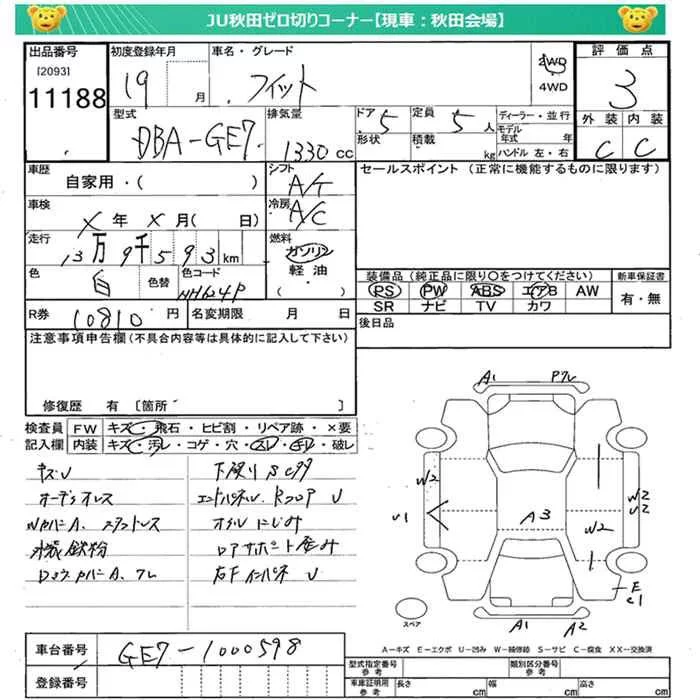 JU秋田ゼロ切りコーナー【現車：秋田会場】
出品番号 初度登録年月 車名・グレード 評価点
[2093]
11188 19 月 フィット 2WD 4WD 3
型式 排気量 ドア 5 定員 5人 ディーラー・並行 外装 内装
DBA-GE7 1330 cc 形状 積載 kg モデル年式 年 ハンドル 左・右 C C
車歴 自家用・( ) シフト A/T セールスポイント (正常に機能するものに限ります)
車検 X 年 X 月( 日) 冷房 A/C
走行 13万9千593km 燃料 ガソリン 軽油 ( )
色 白 色替 色コード NH624P
装備品 (純正品に限り○をつけてください) 新車保証書
PS PW ABS エアB AW 有・無
SR ナビ TV カワ
R券 10810 円 名変期限 月 日 後日品
注意事項申告欄(不具合内容等は具体的に記入して下さい)
修復歴 有 〔箇所 〕
検査員 FW キズ・飛石・ヒビ割・リペア跡・×要
記入欄 内装 キズ・汚レ・コゲ・穴・スレ・チリ・破レ
キズU 下廻りSCサ
オーデオレス エンドパネル、RフロアU
WカバーA、スタットレス オイルにじみ
水装 鉄粉 ロアサポート歪み
Dロックカバー A、ワレ 右FインパネU
A1 Pワレ
W2 W2
U2
U1 A3 W2
E
C1
スペア A1 A2
A－キズ E－エクボ U－凹み W－補修跡 S－サビ C－腐食 XX－交換済
車台番号 GE7-1000598
登録番号
型式指定番号 参考 類別区分番号 参考
車庫証明用 参考 長さ cm 幅 cm 高さ cm